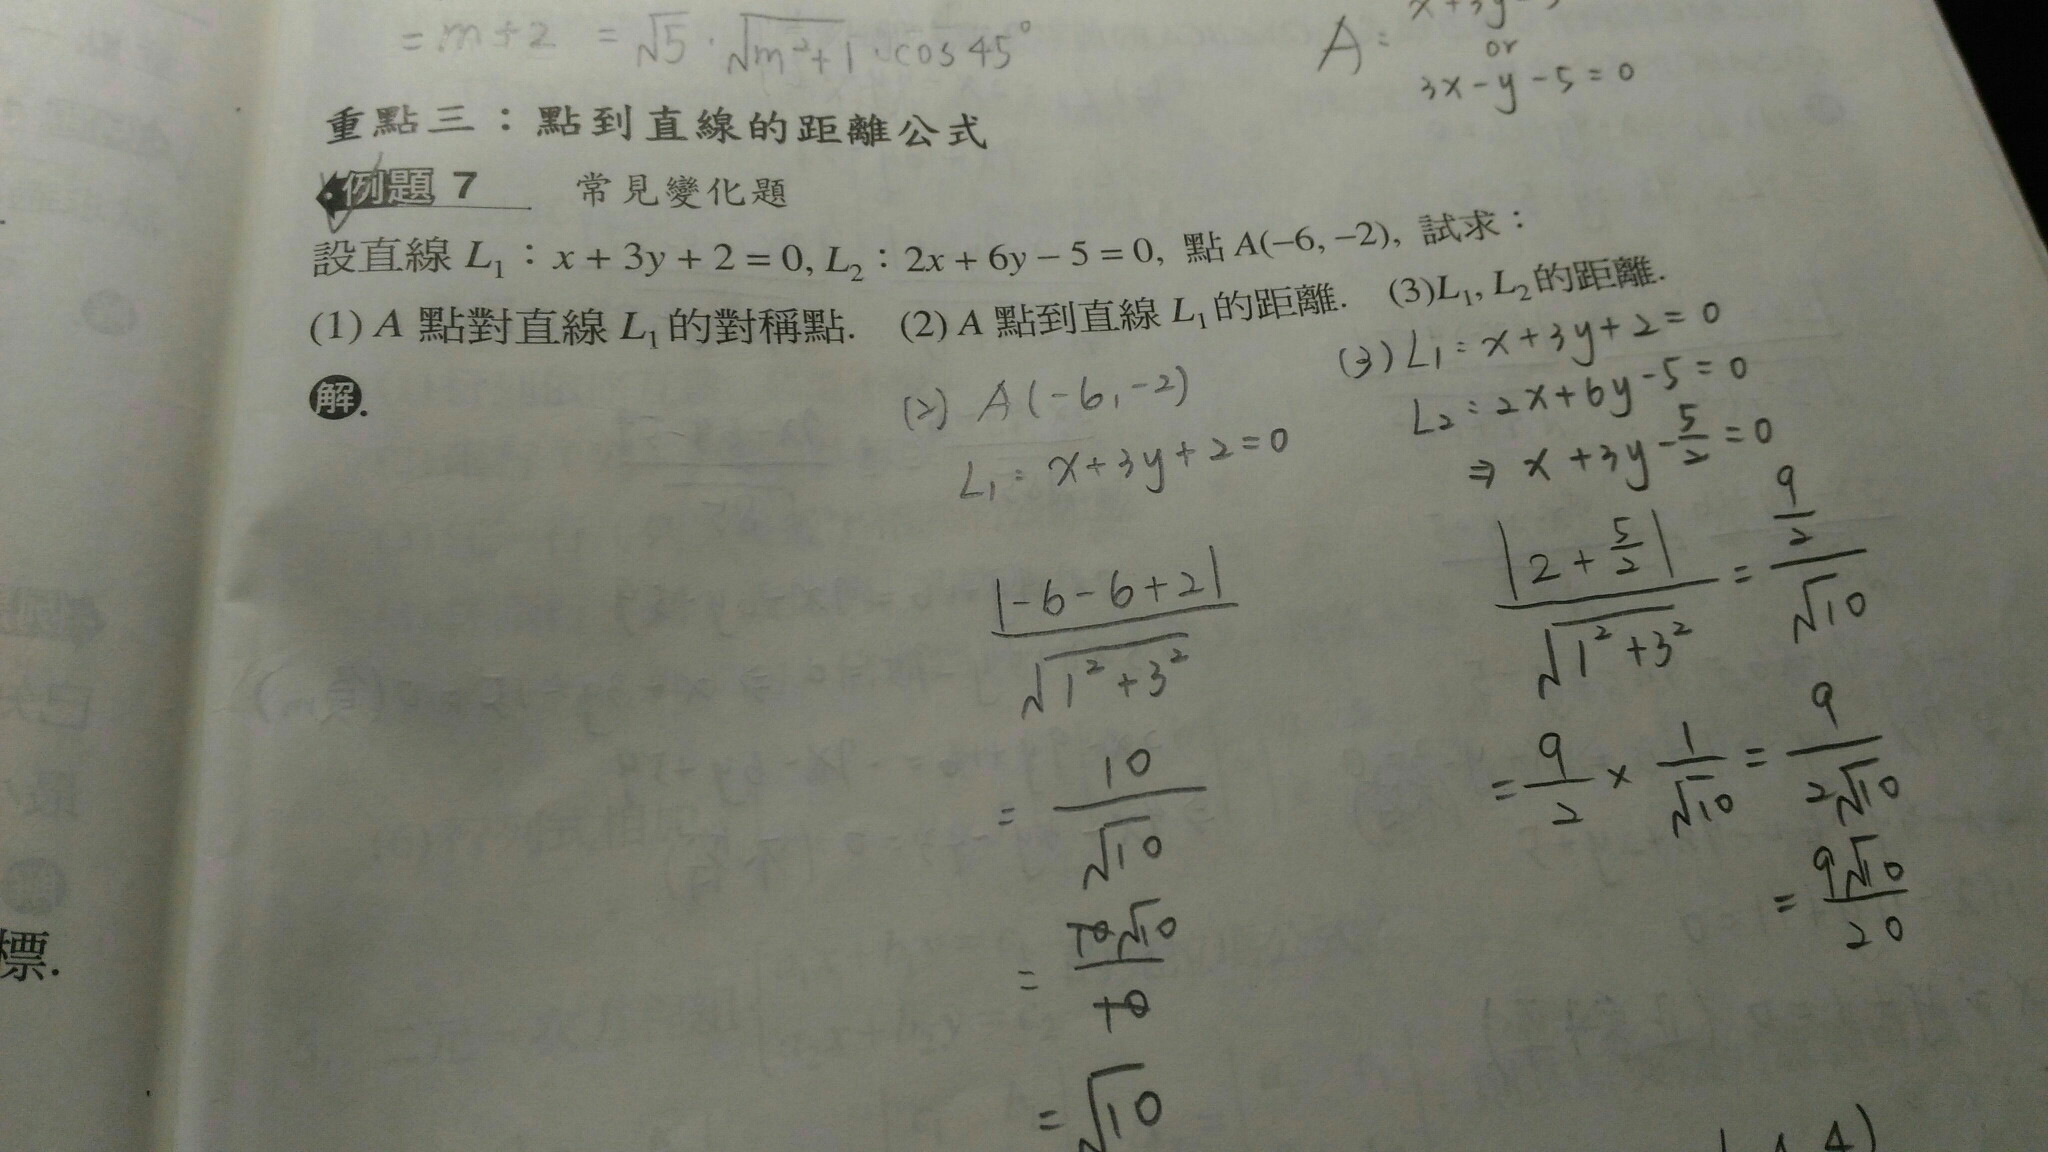 = m+2 = √5 · √m²+1 · cos45°
A:
or
3x-y-5=0
重點三：點到直線的距離公式
例題 7 常見變化題
設直線 L₁：x + 3y + 2 = 0, L₂：2x + 6y − 5 = 0, 點 A(−6, −2), 試求：
(1) A 點對直線 L₁ 的對稱點. (2) A 點到直線 L₁ 的距離. (3) L₁, L₂ 的距離.
解.
(2) A(-6,-2)
L₁: x+3y+2=0
|-6-6+2| / √1²+3²
= 10/√10
= 10√10/10
= √10
(3) L₁: x+3y+2=0
L₂: 2x+6y-5=0
⇒ x+3y-5/2=0
|2+5/2| / √1²+3² = 9/2 / √10
= 9/2 × 1/√10 = 9/2√10
= 9√10/20
標.